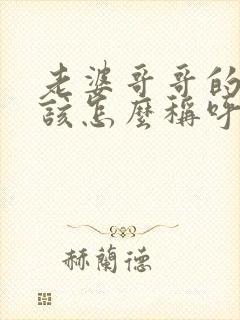 老婆哥哥的
該怎麼稱呼
赫蘭德